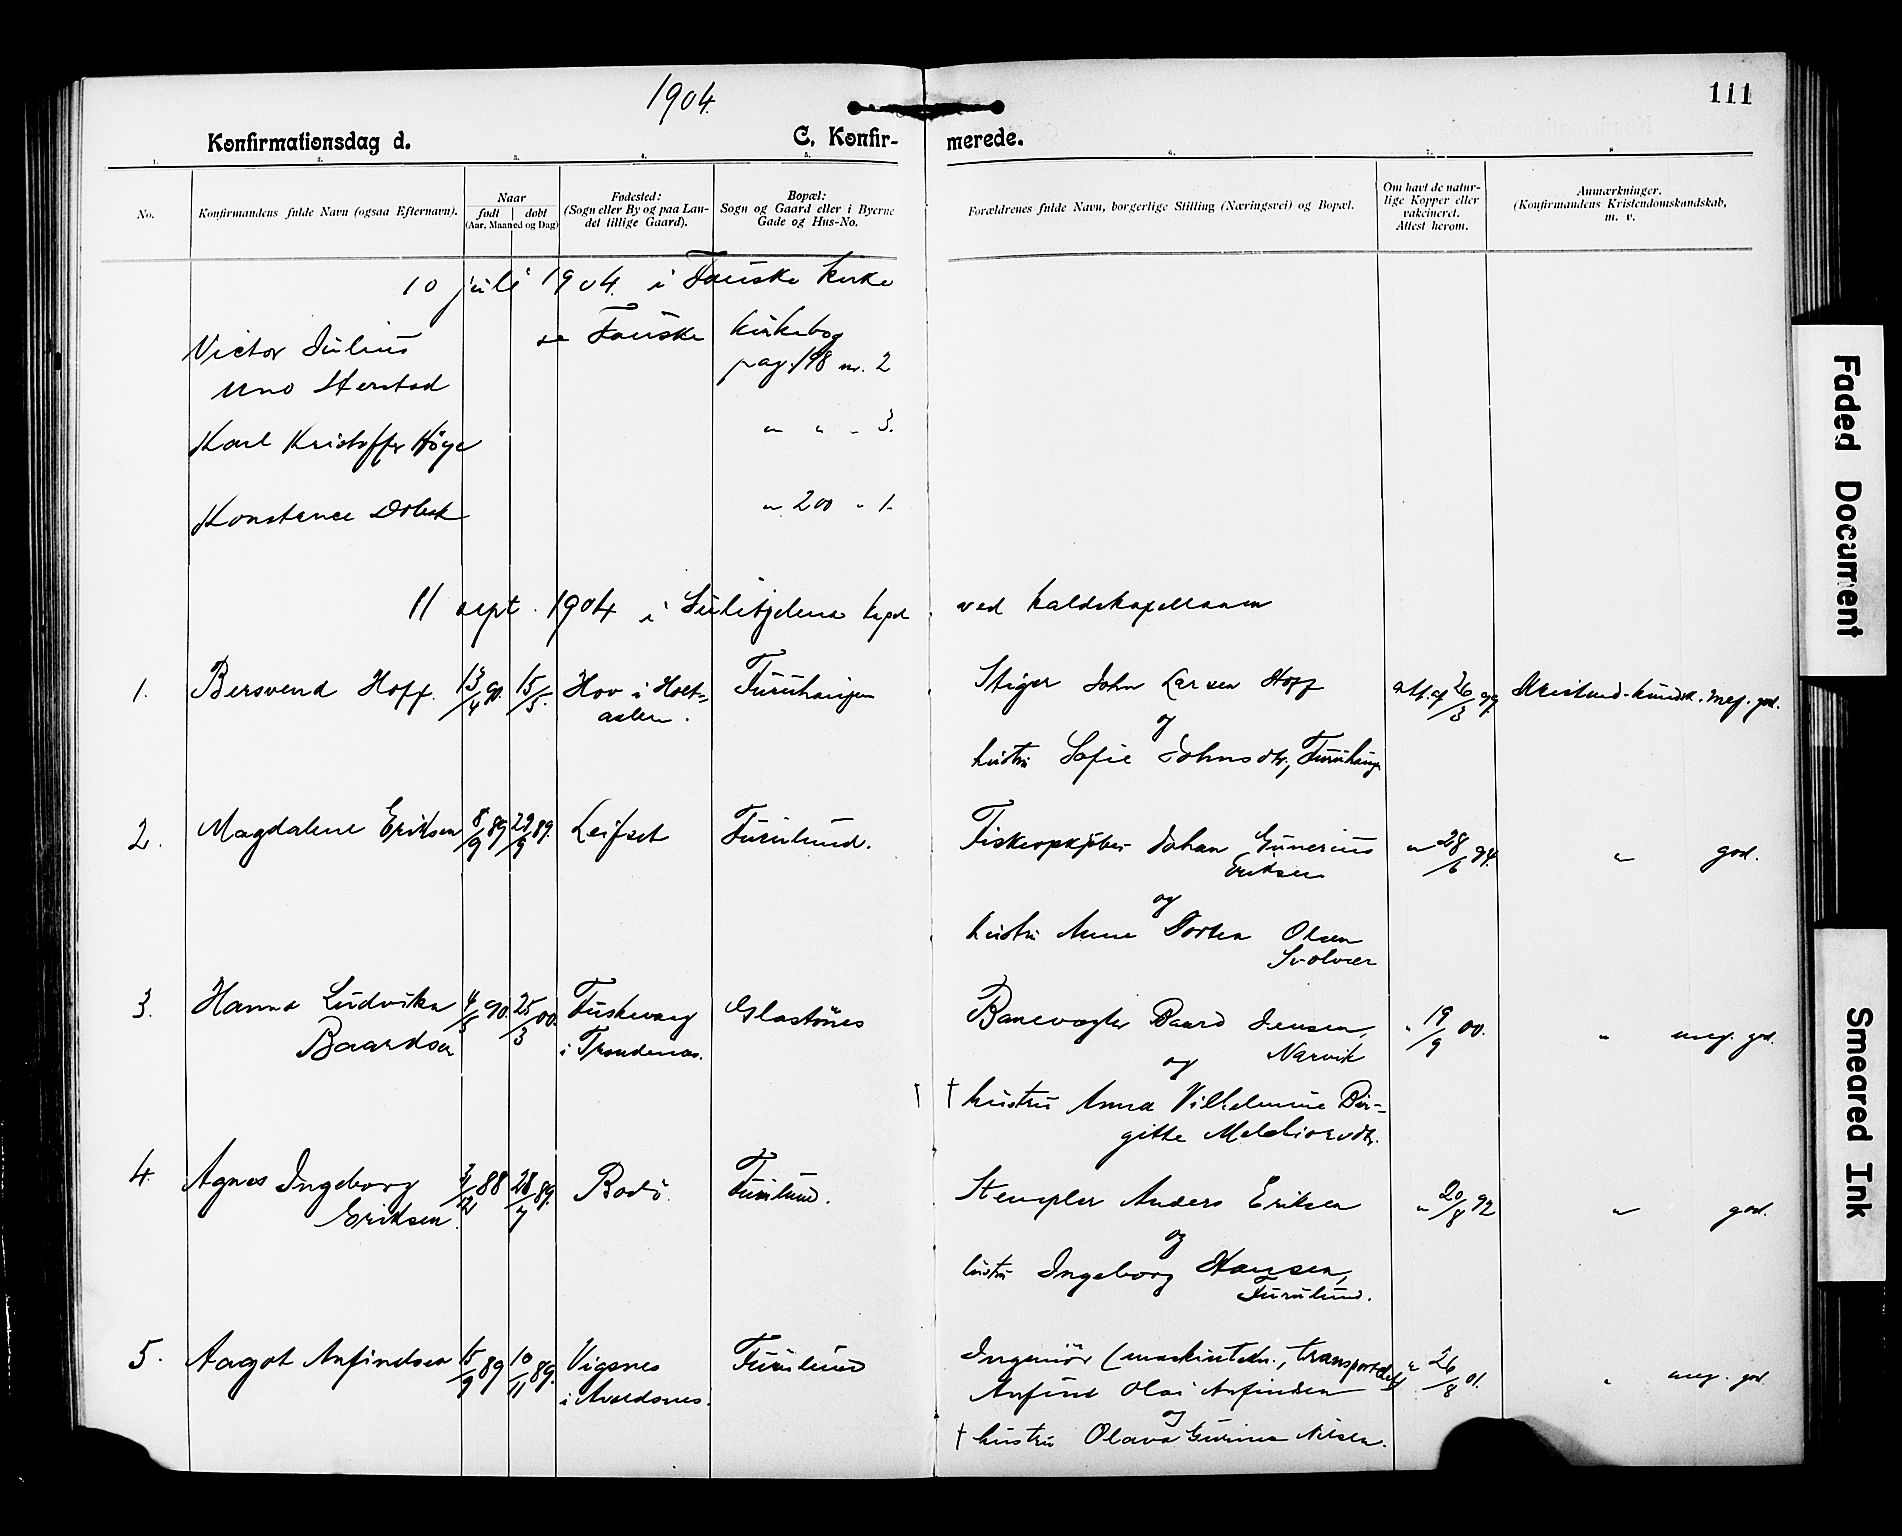 1904.
111
Konfirmationsdag d.
C. Konfirmerede.
1. 2. 3. 4. 5. 6. 7. 8
No.
Konfirmandens fulde Navn (ogsaa Efternavn).
Naar
født | døbt
(Aar, Maaned og Dag)
Fødested:
(Sogn eller By og paa Lan-
det tillige Gaard).
Bopæl:
Sogn og Gaard eller i Byerne
Gade og Hus-No.
Forældrenes fulde Navn, borgerlige Stilling (Næringsvei) og Bopæl.
Om havt de natur-
lige Kopper eller
vakcineret.
Attest herom.
Anmærkninger.
(Konfirmandens Kristendomskundskab,
m. v.
10 juli 1904. i Fauske kirke
Victor Julius se Fauske kirkebog
Uno Herstad pag. 198 nr. 2
Karl Kristoffer Høge " " - 3.
Konstance " 200 " 1.
11 sept. 1904 i Sulitjelma kapel ved kaldskapellanen
1. Bersvend Hoff. 13/4 90. 15/5 Hov i Holt- Furuhaugen Stiger John Larsen Hoff att. af 26/3 99 Kristend.kundsk. meg. god.
aalen.
og
hustru Sofie Johnsdtr., Furuhaug
2. Magdalene Eriksen 8/9 89 29/9 89. Leifset Furulund. Fiskeopkjøber Johan Gunerius " 28/6 94. " god.
Eriksen
og
hustru Anne Dortea Olsen
Svolvær
3. Hanna Ludvika 4/3 90. 25/3 00. Fuskevaag Glastunes Banevogter Baard Jensen, " 19/9 00. " meg. god.
Baardsen i Trondenæs. Narvik
og
† hustru Anna Vilhelmine Bir-
gitte Melchiorsdtr.
4. Agnes Ingeborg 3/12 88 28/7 89. Bodø. Furulund. Stempler Anders Eriksen " 20/8 92 " god.
Eriksen.
og
hustru Ingeborg Hansen,
Furulund.
5. Aagot Anfindsen 15/9 89 10/11 89. Vigsnes Furulund Ingeniör (maskintekn., transportchef) " 26/8 01. " meg. god.
i Avaldsnes. Anfind Olai Anfindsen
og
† hustru Olava Gurine Nilsen.
Faded Document
Smeared Ink